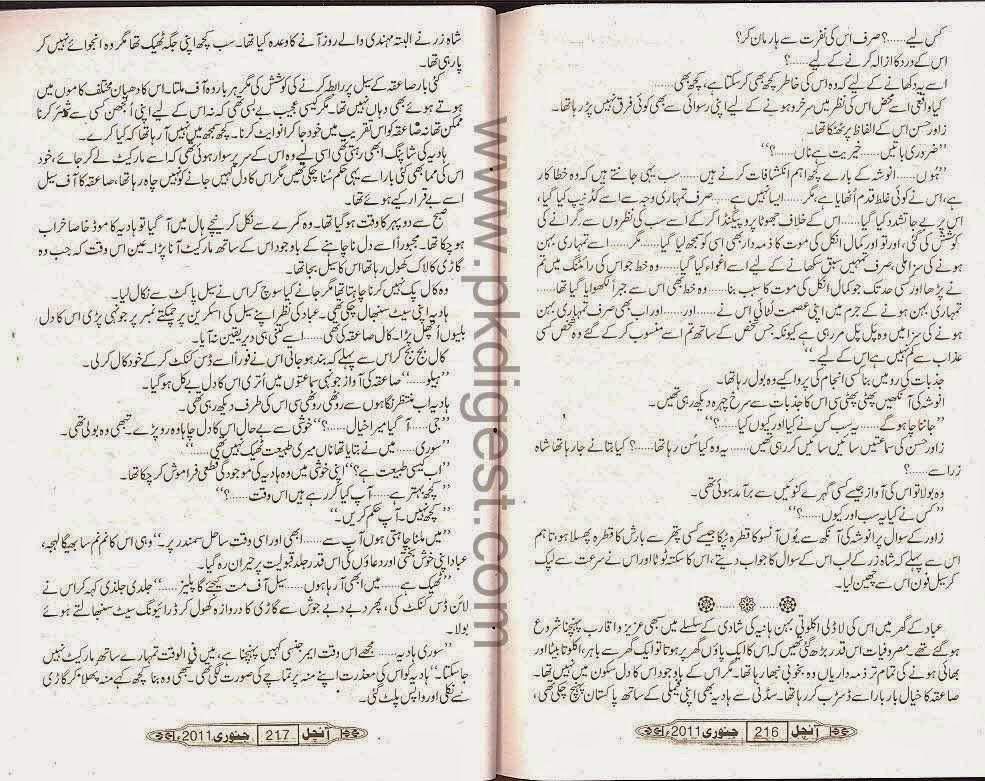 کس لیے......؟ صرف اس کی نفرت سے ہار مان کر؟
اس کے درد کا ازالہ کرنے کے لیے......؟
اسے یہ دکھانے کے لیے کہ وہ اس کی خاطر کچھ بھی کر سکتا ہے، کچھ بھی......
کیا واقعی اسے محض اس کی نظر میں سرخرو ہونے کے لیے اپنی رسوائی سے بھی کوئی فرق نہیں پڑ رہا تھا۔
زاور حسن اس کے الفاظ پر ٹھٹکا تھا۔
"ضروری باتیں...... خیریت ہے ناں......؟"
"ہوں...... انوشہ کے بارے کچھ اہم انکشافات کرنے ہیں...... سب یہی جانتے ہیں کہ وہ خطا کار
ہے، اس نے کوئی غلط قدم اُٹھایا ہے، مگر...... ایسا نہیں ہے...... صرف تمہاری وجہ سے اسے کڈنیپ کیا گیا،
اس پر بے جا تشدد کیا گیا...... اس کے خلاف جھوٹا پروپیگنڈا کر کے اسے سب کی نظروں سے گرانے کی
کوشش کی گئی، اور تو اور کمال انکل کی موت کا ذمہ دار بھی اسی کو سمجھا گیا...... مگر...... اسے تمہاری بہن
ہونے کی سزا ملی، صرف تمہیں سبق سکھانے کے لیے اسے اغواء کیا گیا...... وہ خط جو اس کی رائٹنگ میں تم
نے پڑھا اور کسی حد تک جو کمال انکل کی موت کا سبب بنا...... وہ خط بھی اس سے جبراً لکھوایا گیا تھا......
تمہاری بہن ہونے کے جرم میں اپنی عصمت لٹائی اس نے...... اور...... اور اب بھی صرف تمہاری بہن
ہونے کی سزا میں وہ پل پل مر رہی ہے کیونکہ جس شخص کے ساتھ تم اسے منسوب کر کے گئے وہ شخص کسی
عذاب سے کم نہیں ہے اس کے لیے۔"
جذبات کی رو میں بنا کسی انجام کی پروا کیے وہ بول رہا تھا۔
انوشہ کی آنکھیں پھٹی پھٹی سی اس کا جذبات سے سرخ چہرہ دیکھ رہی تھیں۔
"جاننا چاہو گے...... یہ سب کس نے کیا اور کیوں کیا......؟"
زاور حسن کی سماعتیں سائیں سائیں کر رہی تھیں...... یہ وہ کیا سُن رہا تھا......؟ کیا بتانے جا رہا تھا شاہ
زر اسے......؟
وہ بولا تو اس کی آواز جیسے کسی گہرے کنوئیں سے برآمد ہوئی تھی۔
"کس نے کیا یہ سب اور کیوں......؟"
زاور کے سوال پر انوشہ کی آنکھ سے یوں آنسو کا قطرہ ٹپکا جیسے کسی پتھر سے بارش کا قطرہ پھسلا ہو، تاہم
اس سے پہلے کہ شاہ زر کے لب اس کے سوال کا جواب دیتے، اس کا سکتہ ٹوٹا اور اس نے سرعت سے لپک
کر سیل فون اس سے چھین لیا۔
عباد کے گھر میں اس کی لاڈلی اکلوتی بہن ہانیہ کی شادی کے سلسلے میں سبھی عزیز و اقارب پہنچنا شروع
ہو گئے تھے۔ مصروفیات اس قدر بڑھ گئی تھیں کہ اس کا ایک پاؤں گھر پر ہوتا تو ایک گھر سے باہر، اکلوتا بیٹا اور
بھائی ہونے کی تمام تر ذمہ داریاں وہ بخوبی نبھا رہا تھا۔ مگر اس کے باوجود اس کا دل سکون میں نہیں تھا۔
صاعقہ کا خیال بار بار اسے ڈسٹرب کر رہا تھا۔ سڈنی سے ہادیہ بھی اپنی فیملی کے ساتھ پاکستان پہنچ چکی تھی،
آنچل 216 جنوری 2011ء
شاہ زر نے البتہ مہندی والے روز آنے کا وعدہ کیا تھا۔ سب کچھ اپنی جگہ ٹھیک تھا مگر وہ انجوائے نہیں کر
پا رہی تھا۔
کئی بار صاعقہ کے سیل پر رابطہ کرنے کی کوشش کی مگر ہر بار وہ آف ملتا۔ اس کا دھیان مختلف کاموں میں
ہوتے ہوئے بھی وہاں نہیں تھا۔ مگر کیسی عجیب بے بسی تھی کہ نہ اس کے لیے اپنی اُلجھن کسی سے شیئر کرنا
ممکن تھا نہ صاعقہ کو اس تقریب میں خود جا کر انوائیٹ کرنا۔ کچھ سمجھ میں نہیں آ رہا تھا کہ کیا کرے۔
ہادیہ کی شاپنگ ابھی رہتی تھی اسی لیے وہ اس کے سر پر سوار ہوئی تھی کہ اسے مارکیٹ لے کر جائے، خود
اس کی مما بھی کئی بار اسے یہی حکم سُنا چکی تھیں مگر اس کا دل کہیں جانے کو نہیں چاہ رہا تھا، صاعقہ کا آف سیل
اسے بے قرار کیے ہوئے تھا۔
صبح سے دوپہر کا وقت ہو گیا تھا۔ وہ کمرے سے نکل کر نیچے ہال میں آ گیا تو ہادیہ کا موڈ خاصا خراب
ہو چکا تھا۔ مجبوراً اسے دل نا چاہنے کے باوجود اس کے ساتھ مارکیٹ آنا پڑا۔ عین اس وقت کہ جب وہ
گاڑی کا لاک کھول رہا تھا اس کا سیل بجا تھا۔
وہ کال پک نہیں کرنا چاہتا تھا مگر جانے کیا سوچ کر اس نے سیل پاکٹ سے نکال لیا۔
ہادیہ اپنی سیٹ سنبھال چکی تھی۔ عباد کی نظر اپنے سیل کی اسکرین پر چمکتے نمبر پر جونہی پڑی اس کا دل
بلیوں اُچھل پڑا۔ کال صاعقہ کی تھی...... اسے کتنی ہی دیر یقین نہ آیا۔
کال بج بج کر اس سے پہلے کہ بند ہو جاتی اس نے فوراً اسے ڈس کنکٹ کر کے خود کال کر لی۔
"ہیلو......" صاعقہ کی آواز جونہی سماعتوں میں اُتری اس کا دل بے کل ہو گیا۔
ہادیہ اب منتظر نگاہوں سے روٹھی روٹھی سی اس کی طرف دیکھ رہی تھی۔
"جی...... آ گیا میرا خیال......؟" خوشی سے بے حال اس کا دل چاہا وہ رو پڑے۔ تبھی وہ بولی تھی۔
"سوری...... میں نے بتایا تھا ناں میری طبیعت ٹھیک نہیں تھی......"
"اب کیسی طبیعت ہے؟" اپنی خوشی میں وہ ہادیہ کی موجودگی قطعی فراموش کر چکا تھا۔
"کچھ بہتر ہے...... آپ کیا کر رہے ہیں اس وقت......؟"
"کچھ نہیں۔ آپ حکم کریں۔"
"میں ملنا چاہتی ہوں آپ سے...... ابھی اور اسی وقت ساحل سمندر پر۔" وہی اس کا نم نم سا بھیگا لہجہ،
عباد اپنی خوش بختی اور دعاؤں کی اس قدر جلد قبولیت پر حیران رہ گیا۔
"ٹھیک ہے...... میں ابھی آ رہا ہوں...... سیل آف مت کیجئے گا پلیز......" جلدی جلدی کہہ کر اس نے
لائن ڈس کنکٹ کی، پھر دبے دبے جوش سے گاڑی کا دروازہ کھول کر ڈرائیونگ سیٹ سنبھالتے ہوئے
بولا۔
"سوری ہادیہ...... مجھے اس وقت ایمرجنسی کہیں پہنچنا ہے، میں فی الوقت تمہارے ساتھ مارکیٹ نہیں
جا سکتا۔" ہادیہ کو اس کی معذرت اپنے منہ پر طمانچے کی صورت لگی تھی۔ تبھی وہ بنا کچھ کہے منہ پھلا کر گاڑی
سے نکلی اور واپس پلٹ گئی۔
آنچل 217 جنوری 2011ء
www.pkdigest.com